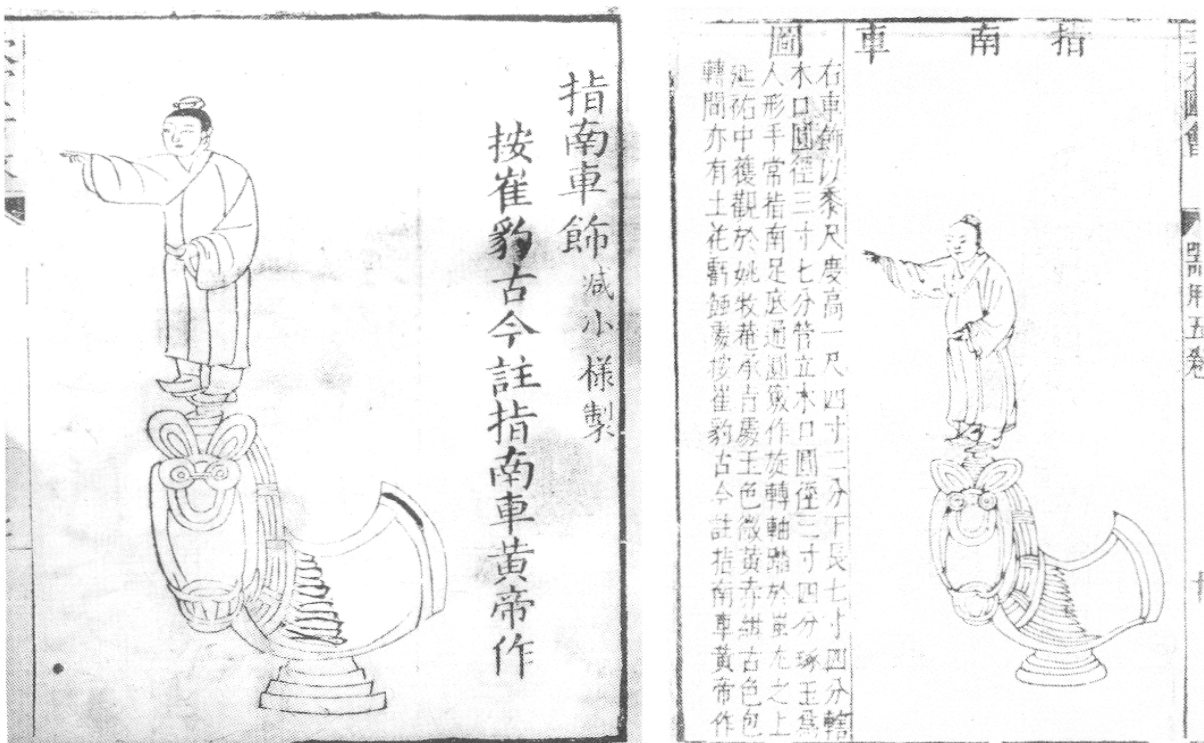 指南車飾减小樣製
按崔豹古今註指南車黃帝作
三才圖會
器用五卷
指南車圖
右車飾以黍尺慶高一尺四寸二分下長七寸四分轄
木口圓徑三寸七分管立木口圓徑三寸四分琢玉爲
人形手常指南足底通圓竅作旋轉軸踏於蚩尤之上
延祐中獲觀於姚牧菴承旨處玉色微黃赤紺古色包
轉間亦有土花蝕處按崔豹古今註指南車黃帝作